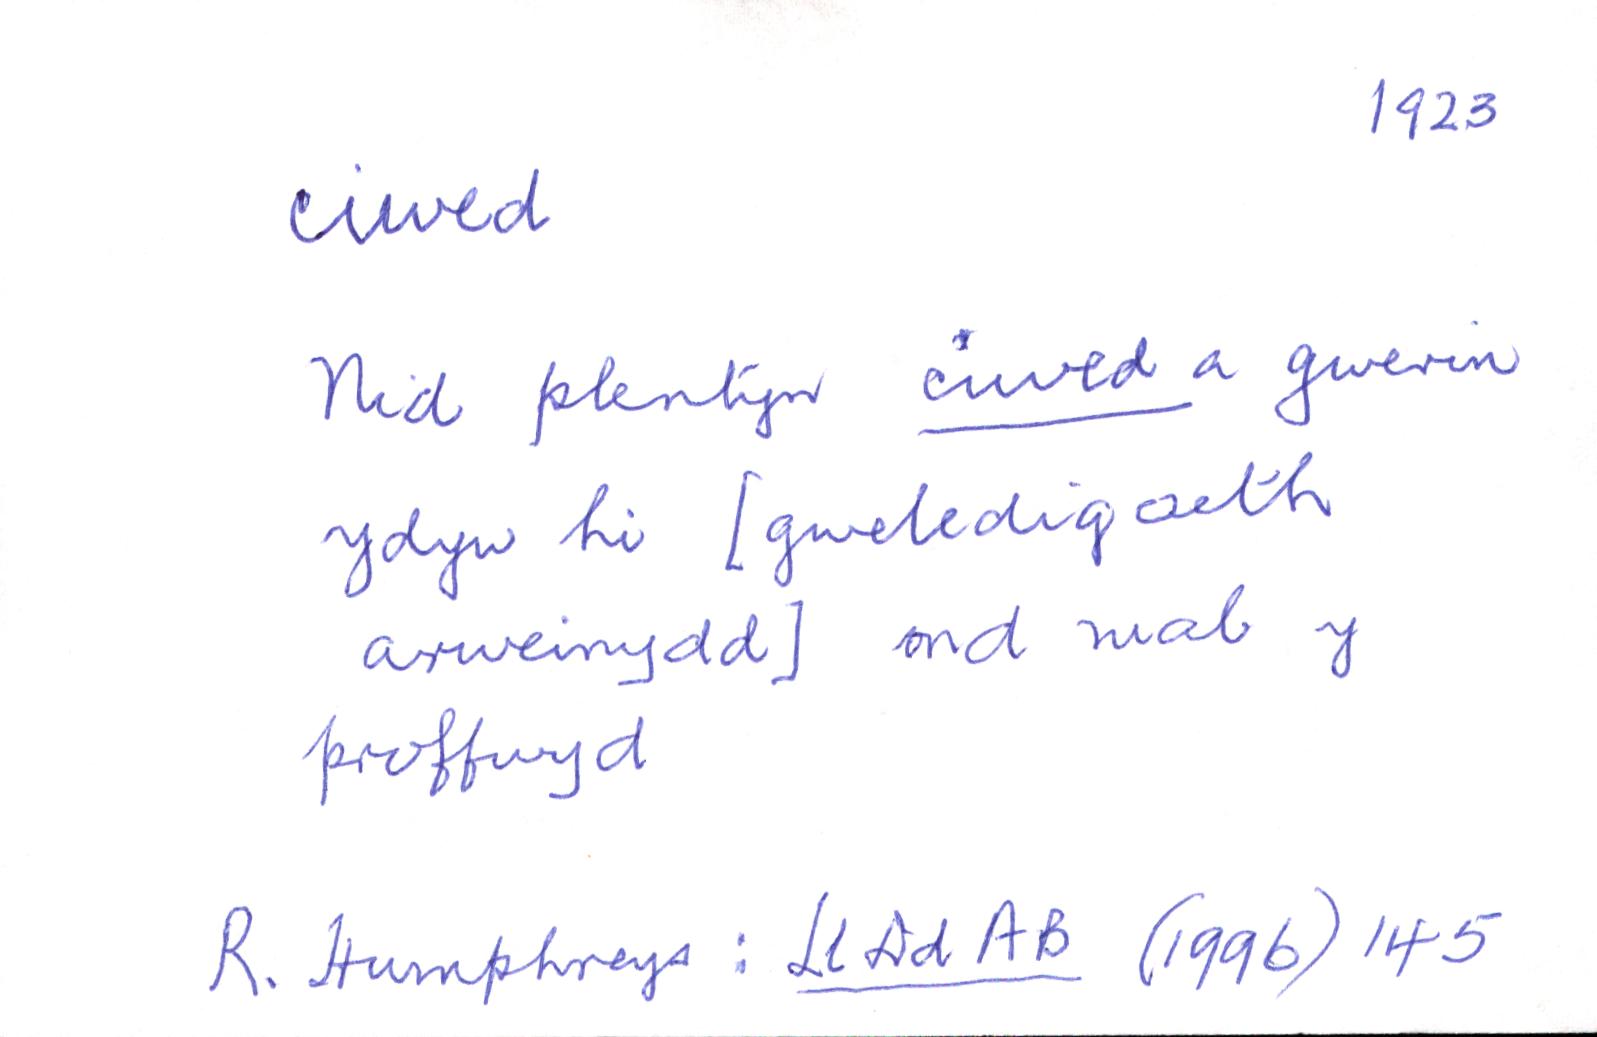 1923
ciwed
Nid plentyn ciwed a gwerin
ydyw hi [gweledigaeth
arweinydd] ond mab y
proffwyd
R. Humphreys : Ll Dd A B (1996) 145